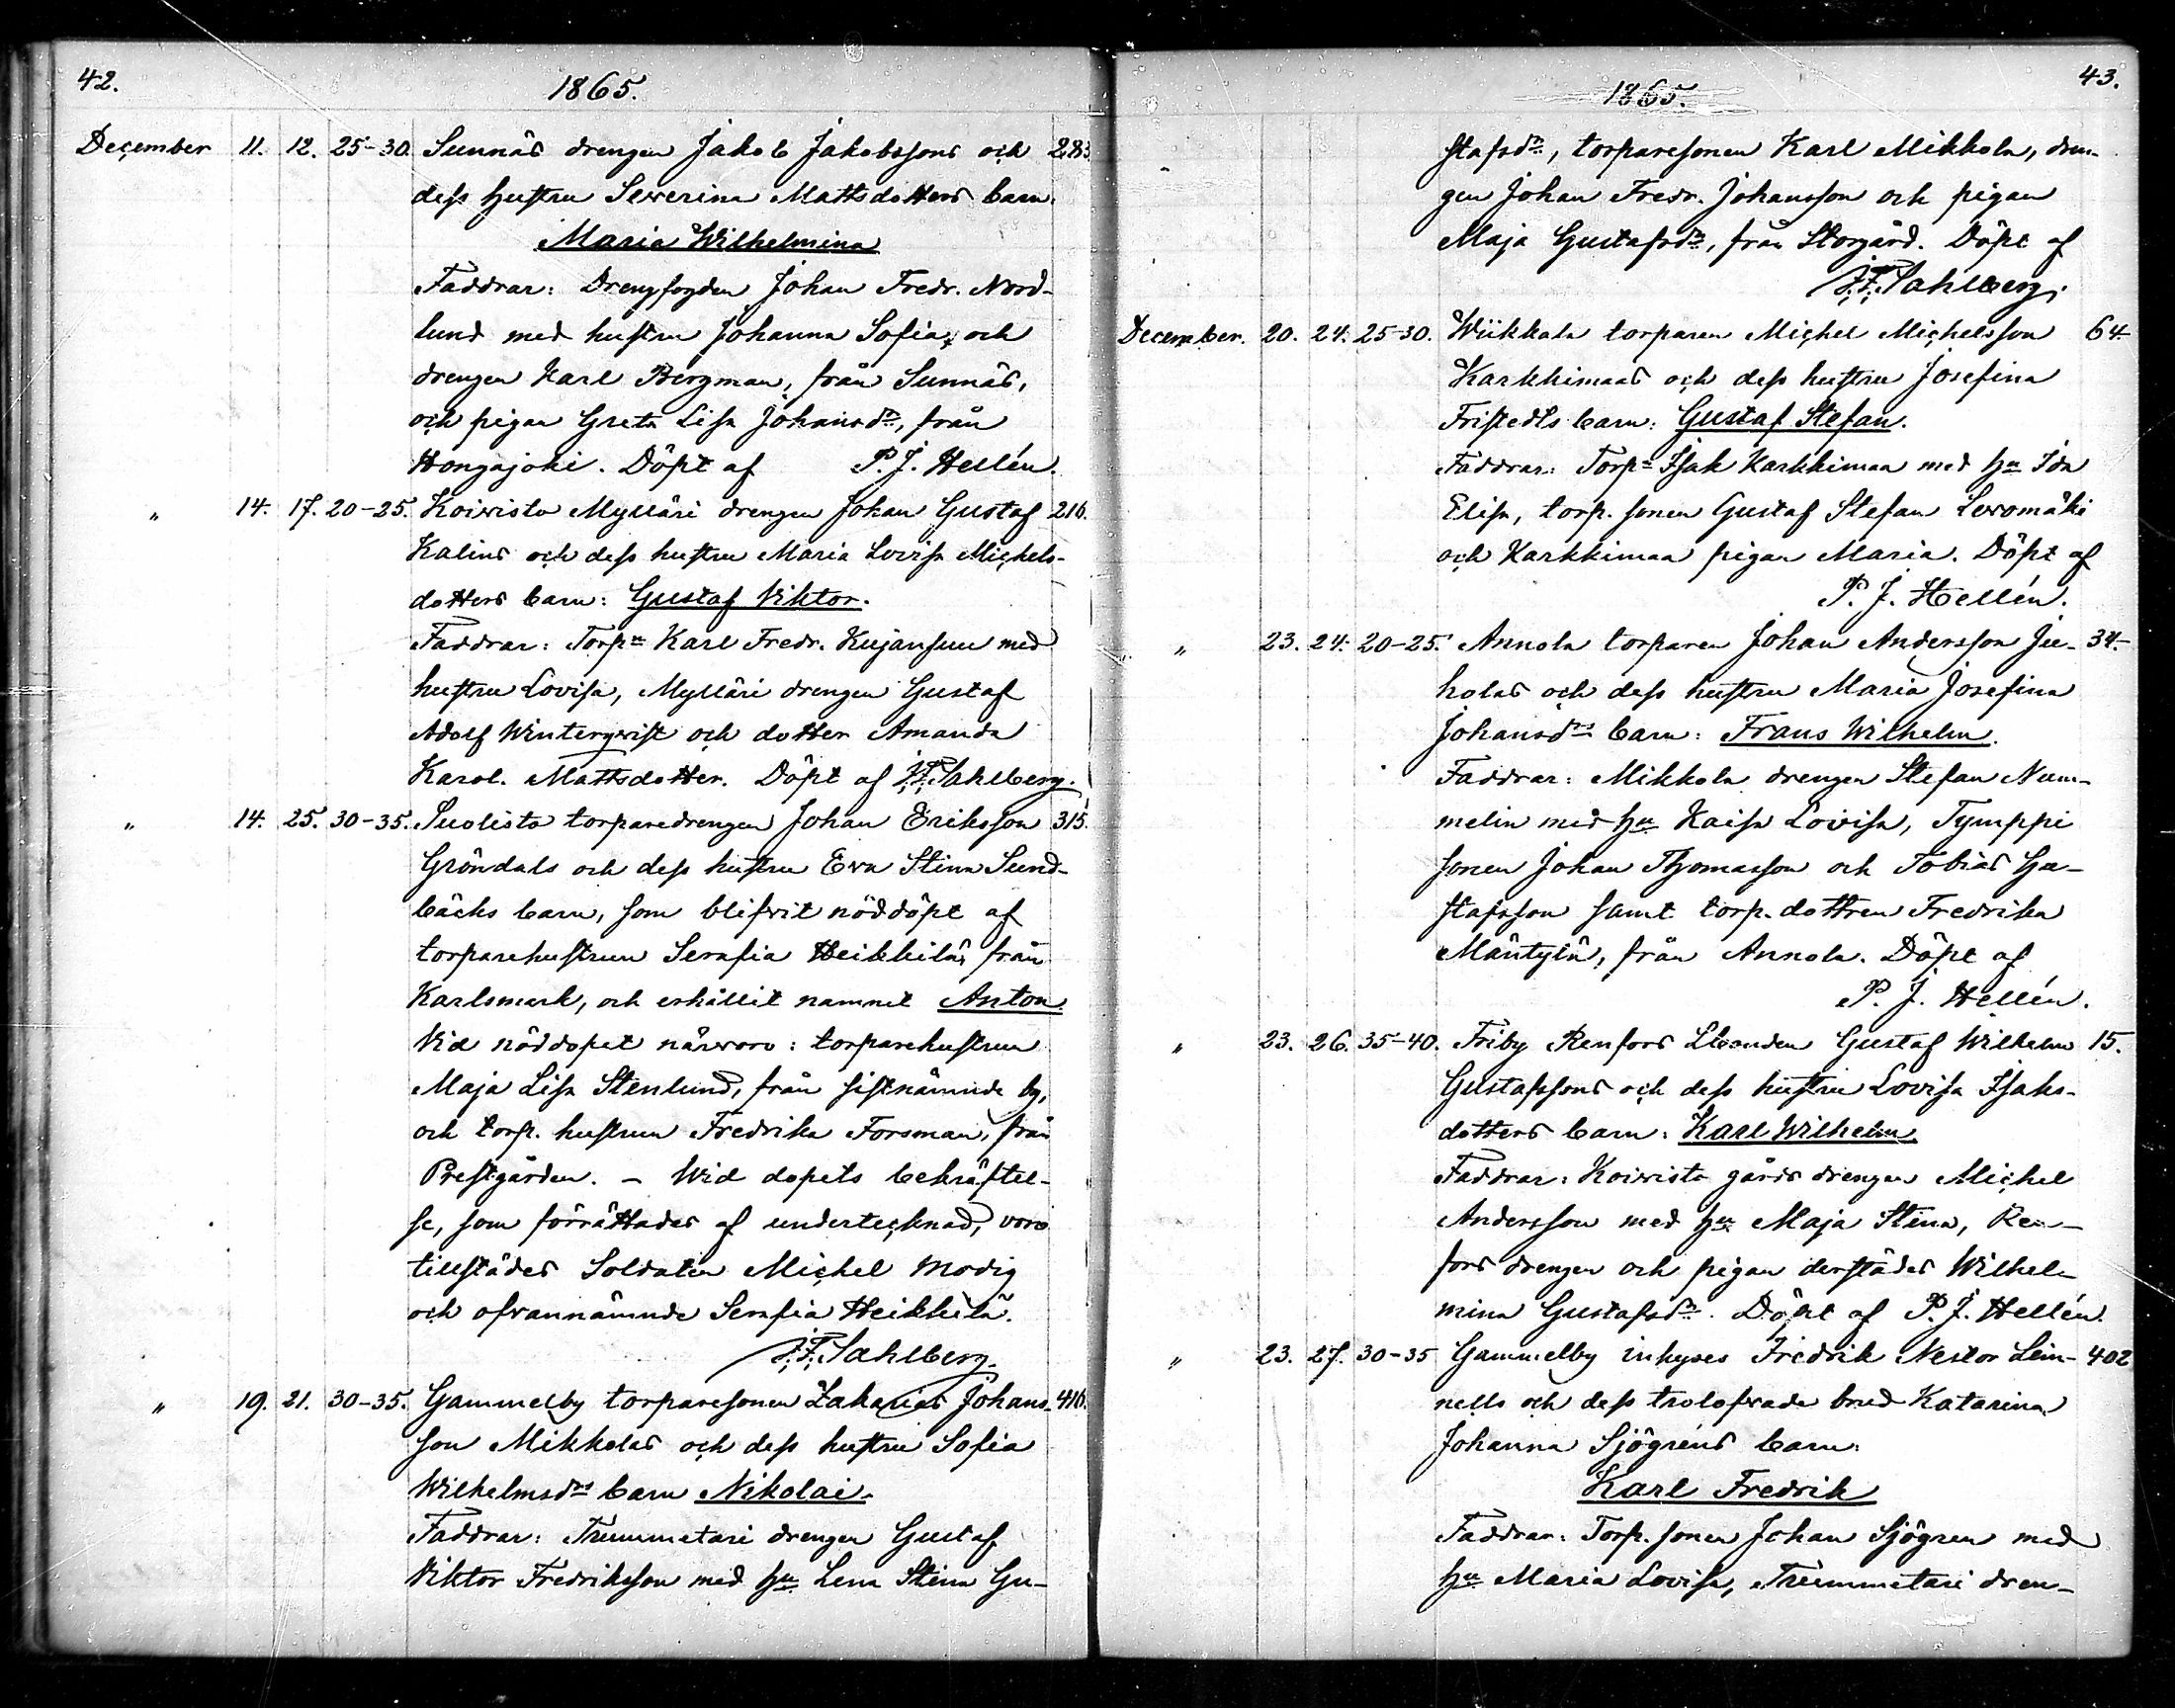 42.
1865.
December 11. 12. 25-30. Sunnäs drengen Jakob Jakobssons och 283.
dess hustru Severina Mattsdotters barn.
Maria Wilhelmina
Faddrar: Drengfogden Johan Fredr. Nord-
lund med hustru Johanna Sofia, och
drengen Karl Bergman, från Sunnäs,
och pigan Greta Lisa Johansdr, från
Hongajoki. Döpt af P. J. Hellén.
" 14. 17. 20-25. Koivisto Mylläri drengen Johan Gustaf 216.
Kalins och dess hustru Maria Lovisa Michels-
dotters barn: Gustaf Viktor.
Faddrar: Torpn Karl Fredr. Kujansuu med
hustru Lovisa, Mylläri drengen Gustaf
Adolf Winterqvist och dotter Amanda
Karol. Mattsdotter. Döpt af J. F. Sahlberg.
" 14. 25. 30-35. Suolisto torparedrengen Johan Eriksson 315.
Gröndals och dess hustru Eva Stina Sund-
bäcks barn, som blifvit nöddöpt af
torparehustrun Serafia Heikkilä, från
Karlsmark, och erhållit namnet Anton.
Vid nöddopet närvoro: torparehustrun
Maja Lisa Stenlund, från sistnämnde by,
och torp. hustrun Fredrika Forsman, från
Prestgården. - Wid dopets bekräftel-
se, som förrättades af undertecknad, voro
tillstädes Soldaten Michel Modig
och ofvannämnde Serafia Heikkilä.
J. F. Sahlberg.
" 19. 21. 30-35. Gammelby torparesonen Zakarias Johans- 416.
son Mikkolas och dess hustru Sofia
Wilhelmsdrs barn Nikolai.
Faddrar: Trummetari drengen Gustaf
Viktor Fredriksson med hu Lena Stina Gu-
43.
1865.
stafsdr, torparesonen Karl Mikkola, dren-
gen Johan Fredr. Johansson och pigan
Maja Gustafsdr, från Storgård. Döpt af
J. F. Sahlberg.
December. 20. 24. 25-30. Wiikkala torparen Michel Michelsson 64.
Karkkimaas och dess hustru Josefina
Fristedts barn: Gustaf Stefan.
Faddrar: Torpn Isak Karkkimaa med hu Ida
Elisa, torp. sonen Gustaf Stefan Levomäki
och Karkkimaa pigan Maria. Döpt af
P. J. Hellén.
" 23. 24. 20-25. Annola torparen Johan Andersson Ju- 34.
holas och dess hustru Maria Josefina
Johansdrs barn: Frans Wilhelm.
Faddrar: Mikkola drengen Stefan Num-
melin med hu Kaisa Lovisa, Tymppi
sonen Johan Thomasson och Tobias Gu-
stafsson samt torp. dottren Fredrika
Mäntylä, från Annola. Döpt af
P. J. Hellén.
" 23. 26. 35-40. Friby Renfors Åboanden Gustaf Wilhelm 15.
Gustafssons och dess hustru Lovisa Isaks-
dotters barn: Karl Wilhelm.
Faddrar: Koivisto gårds drengen Michel
Andersson med hu Maja Stina, Ren-
fors drengen och pigan derstädes Wilhel-
mina Gustafsdr. Döpt af P. J. Hellén.
" 23. 27. 30-35 Gammelby inhyses Fredrik Nestor Lein- 402
nells och dess trolofvade brud Katarina
Johanna Sjögréns barn:
Karl Fredrik
Faddrar: Torp. sonen Johan Sjögren med
hu Maria Lovisa, Trummetari dren-